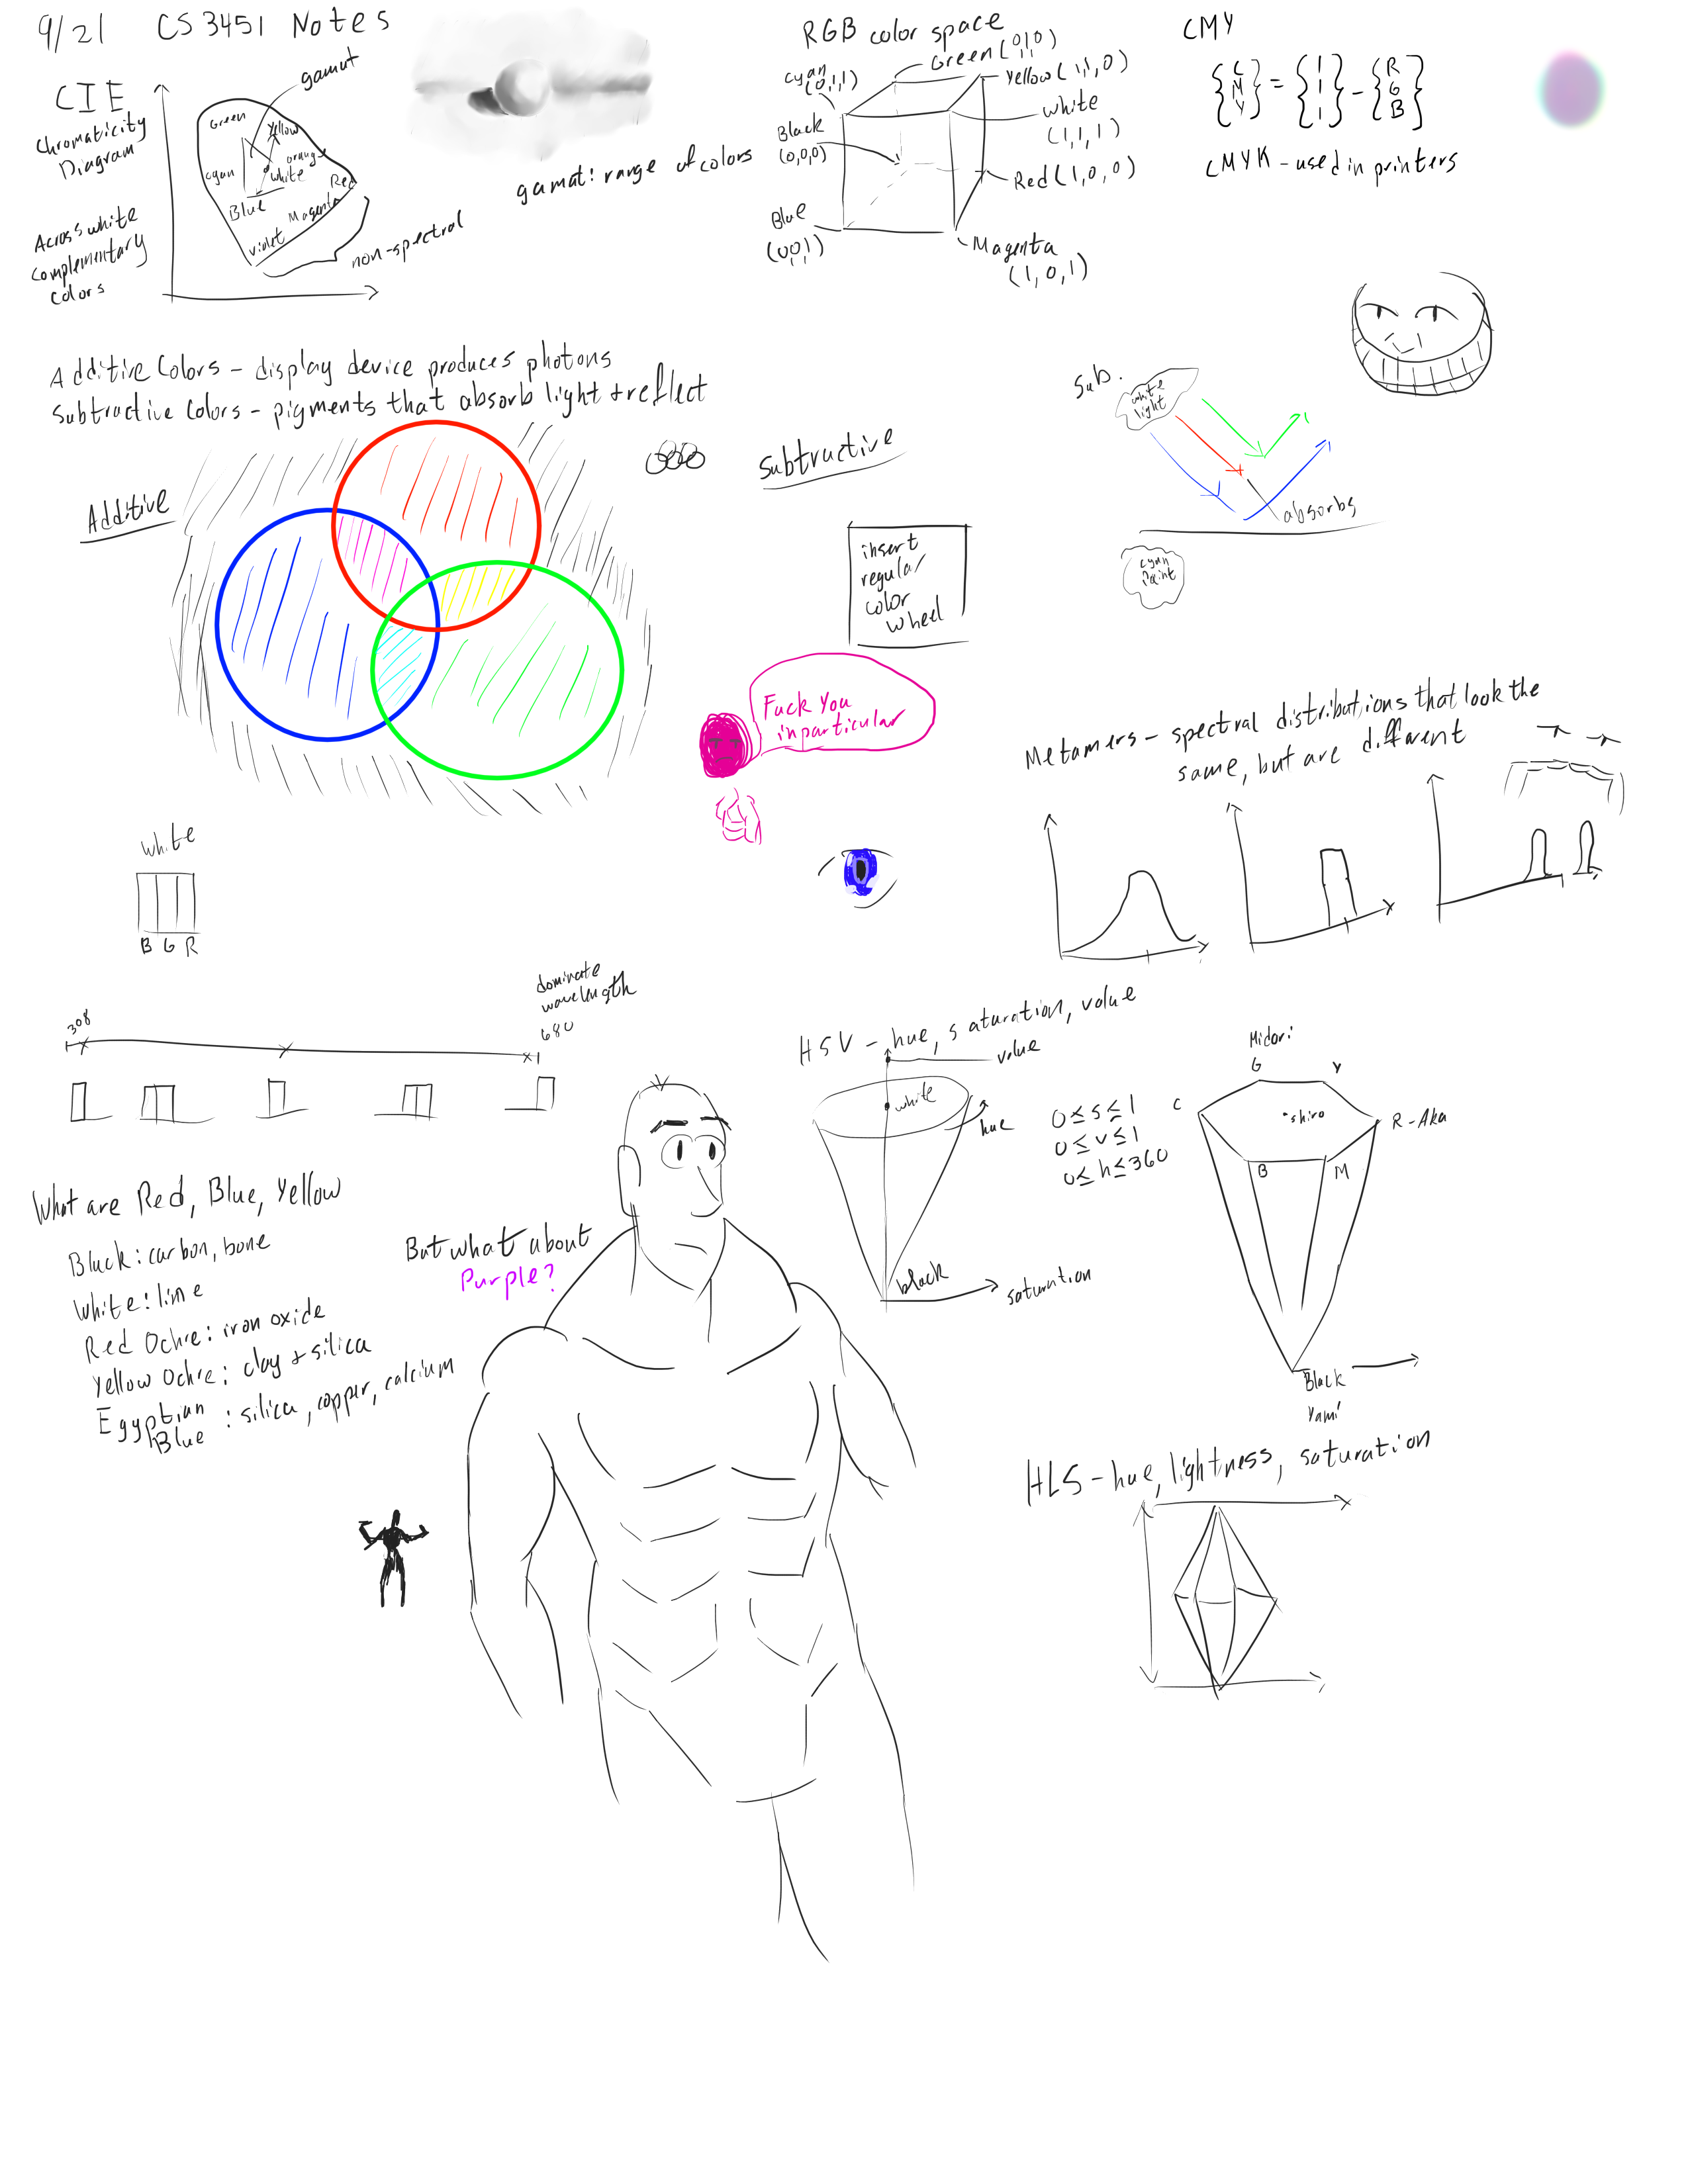 9/21 CS 3451 Notes
CIE
Chromaticity
Diagram
Across white
complementary
colors
gamut
Green
Yellow
orange
cyan
white
Red
Blue
Magenta
violet
non-spectral
gamat: range of colors
RGB color space
Green (0,1,0)
cyan
(0,1,1)
Yellow (1,1,0)
white
(1,1,1)
Black
(0,0,0)
Red (1,0,0)
Blue
(0,0,1)
Magenta
(1,0,1)
CMY
{C M Y} = {1 1 1} - {R G B}
CMYK - used in printers
Additive Colors - display device produces photons
Subtractive Colors - pigments that absorb light + reflect
Additive
Subtractive
insert
regular
color
wheel
Sub.
white
light
absorbs
cyan
Paint
Fuck You
inparticular
Metamers - spectral distributions that look the
same, but are different
white
B G R
308
dominate
wavelength
680
HSV - hue, saturation, value
value
white
hue
black
saturation
0 ≤ s ≤ 1
0 ≤ v ≤ 1
0 ≤ h ≤ 360
Midori
G
Y
C
shiro
R - Aka
B
M
Black
Yami
What are Red, Blue, Yellow
Black: carbon, bone
White: lime
Red Ochre: iron oxide
Yellow Ochre: clay + silica
Egyptian
Blue : silica, copper, calcium
But what about
Purple?
HLS - hue, lightness, saturation